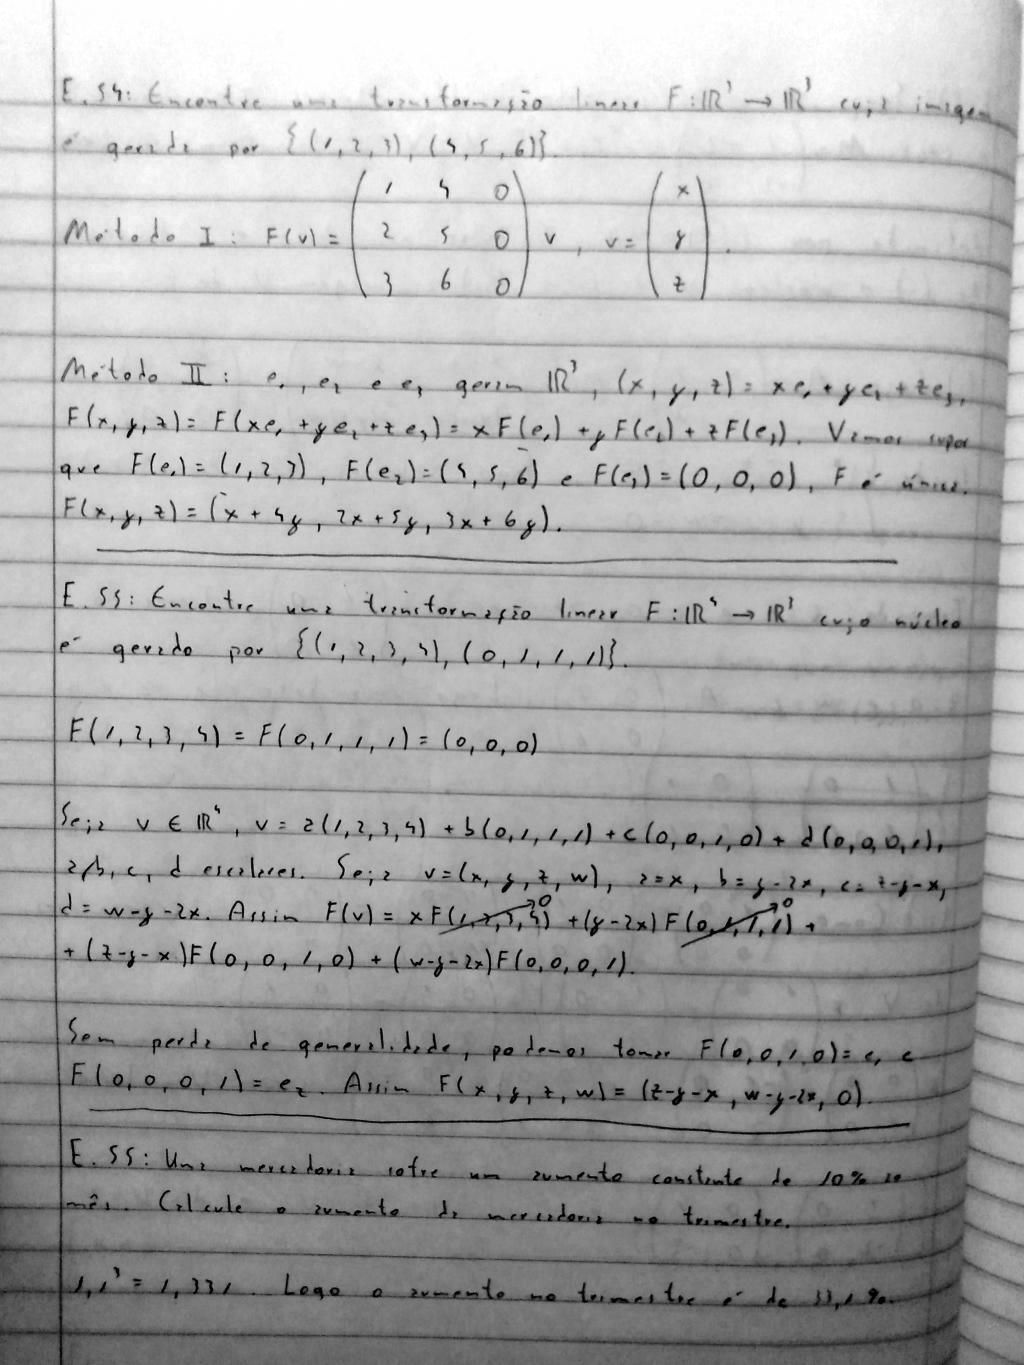 E. 54: Encontre uma transformação linear F: ℝ³ → ℝ³ cuja imagem
é gerada por {(1, 2, 3), (4, 5, 6)}.
Método I: F(v) = ( 1 4 0 ; 2 5 0 ; 3 6 0 ) v, v = ( x ; y ; z ).
Método II: e₁, e₂ e e₃ geram ℝ³, (x, y, z) = xe₁ + ye₂ + ze₃,
F(x, y, z) = F(xe₁ + ye₂ + ze₃) = xF(e₁) + yF(e₂) + zF(e₃). Vamos supor
que F(e₁) = (1, 2, 3), F(e₂) = (4, 5, 6) e F(e₃) = (0, 0, 0), F é única.
F(x, y, z) = (x + 4y, 2x + 5y, 3x + 6y).
E. 55: Encontre uma transformação linear F: ℝ⁴ → ℝ³ cujo núcleo
é gerado por {(1, 2, 3, 4), (0, 1, 1, 1)}.
F(1, 2, 3, 4) = F(0, 1, 1, 1) = (0, 0, 0)
Seja v ∈ ℝ⁴, v = a(1, 2, 3, 4) + b(0, 1, 1, 1) + c(0, 0, 1, 0) + d(0, 0, 0, 1),
a, b, c, d escalares. Seja v = (x, y, z, w), a = x, b = y - 2x, c = z - y - x,
d = w - y - 2x. Assim F(v) = xF(1, 2, 3, 4)→0 + (y - 2x)F(0, 1, 1, 1)→0 +
+ (z - y - x)F(0, 0, 1, 0) + (w - y - 2x)F(0, 0, 0, 1).
Sem perda de generalidade, podemos tomar F(0, 0, 1, 0) = e₁ e
F(0, 0, 0, 1) = e₂. Assim F(x, y, z, w) = (z - y - x, w - y - 2x, 0).
E. 55: Uma mercadoria sofre um aumento constante de 10% ao
mês. Calcule o aumento da mercadoria no trimestre.
1,1³ = 1,331. Logo o aumento no trimestre é de 33,1%.